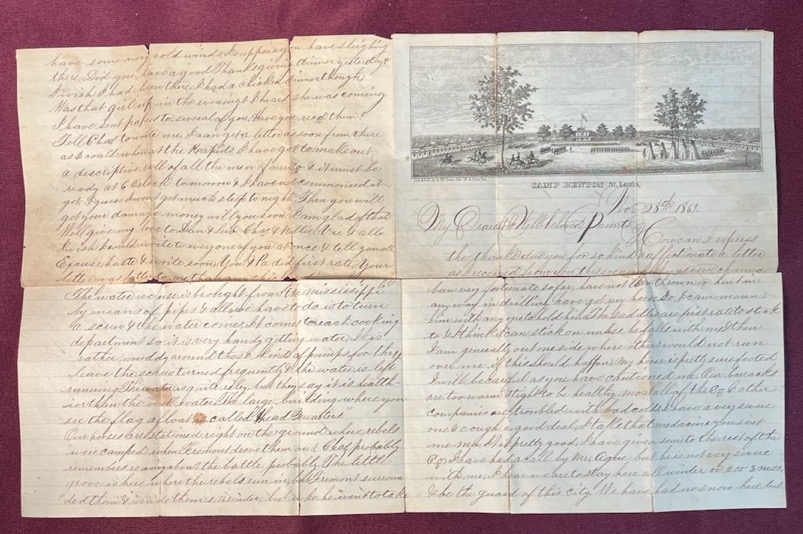 CAMP BENTON St. Louis.
Nov 28th 1861
My Dearest & Well beloved Parents
How can I express
the thanks I owe you for so kind & affectionate a letter
as I received from you this
been very fortunate so far have not been thrown or hurt in
any way in drilling have got my horse so I can mount
him with my into hold him The saddles are first rate to stick
to & I think I can stick on unless he falls with me & then
I am generally out one side where others would not run
over me if this should happen My horse is pretty sure footed
I will be careful as you have cautioned me Our barracks
are too warm & tight to be healthy most all of the Co & other
companies are troubled with bad colds I have a very severe
one & cough a good deal, I take that medicine you sent
me, and it is pretty good I have given some to the rest of the
Co I have had a talk by Mr but he is not very severe
with me, I hear we are to stay here all winter or 2 or 3 mos,
& be the guard of this city We have had no snow here but
have some very cold winds I suppose you have sleighing
there. Did you have a good Thanksgiving dinner yesterday &
I wish I had been there I had a chicken dinner though
Was that girl up in the evening I heard she was coming
I have sent papers to several of you have you read them?
Tell Chas to write me, I can get a letter as soon from there
as I could when at the Rapids I have got to make out
a descriptive roll of all the men & it must be
ready at 6 Oclock tomorrow & I have not commenced it
yet I guess I wont get much sleep to night Then you will
get your damage money will you soon I am glad of that
Well give my love to Chas & Nellie & all
I wish I could write to every one of you at once & tell you all
Excuse haste & write soon You & Pa did first rate Your
letter
The water we use is brought from the Mississippi
by means of pipes & all we have to do is to turn
a screw & the water comes It comes to each cooking
department so it is very handy getting water It is
rather muddy around those kind of pumps for they
leave the screw turned frequently & the water is left
running The water is quite rily but they say it is health-
ier than the well water The large building where you
see the flag afloat is called "Head Quarters"
Our horses are stationed right on the ground where rebels
were camped when Fremont drove them out Chas probably
remembers reading about the battle probably. The little
grove is here where the rebels run in, but Fremont surroun-
ded them & made them surrender, but who he went to take